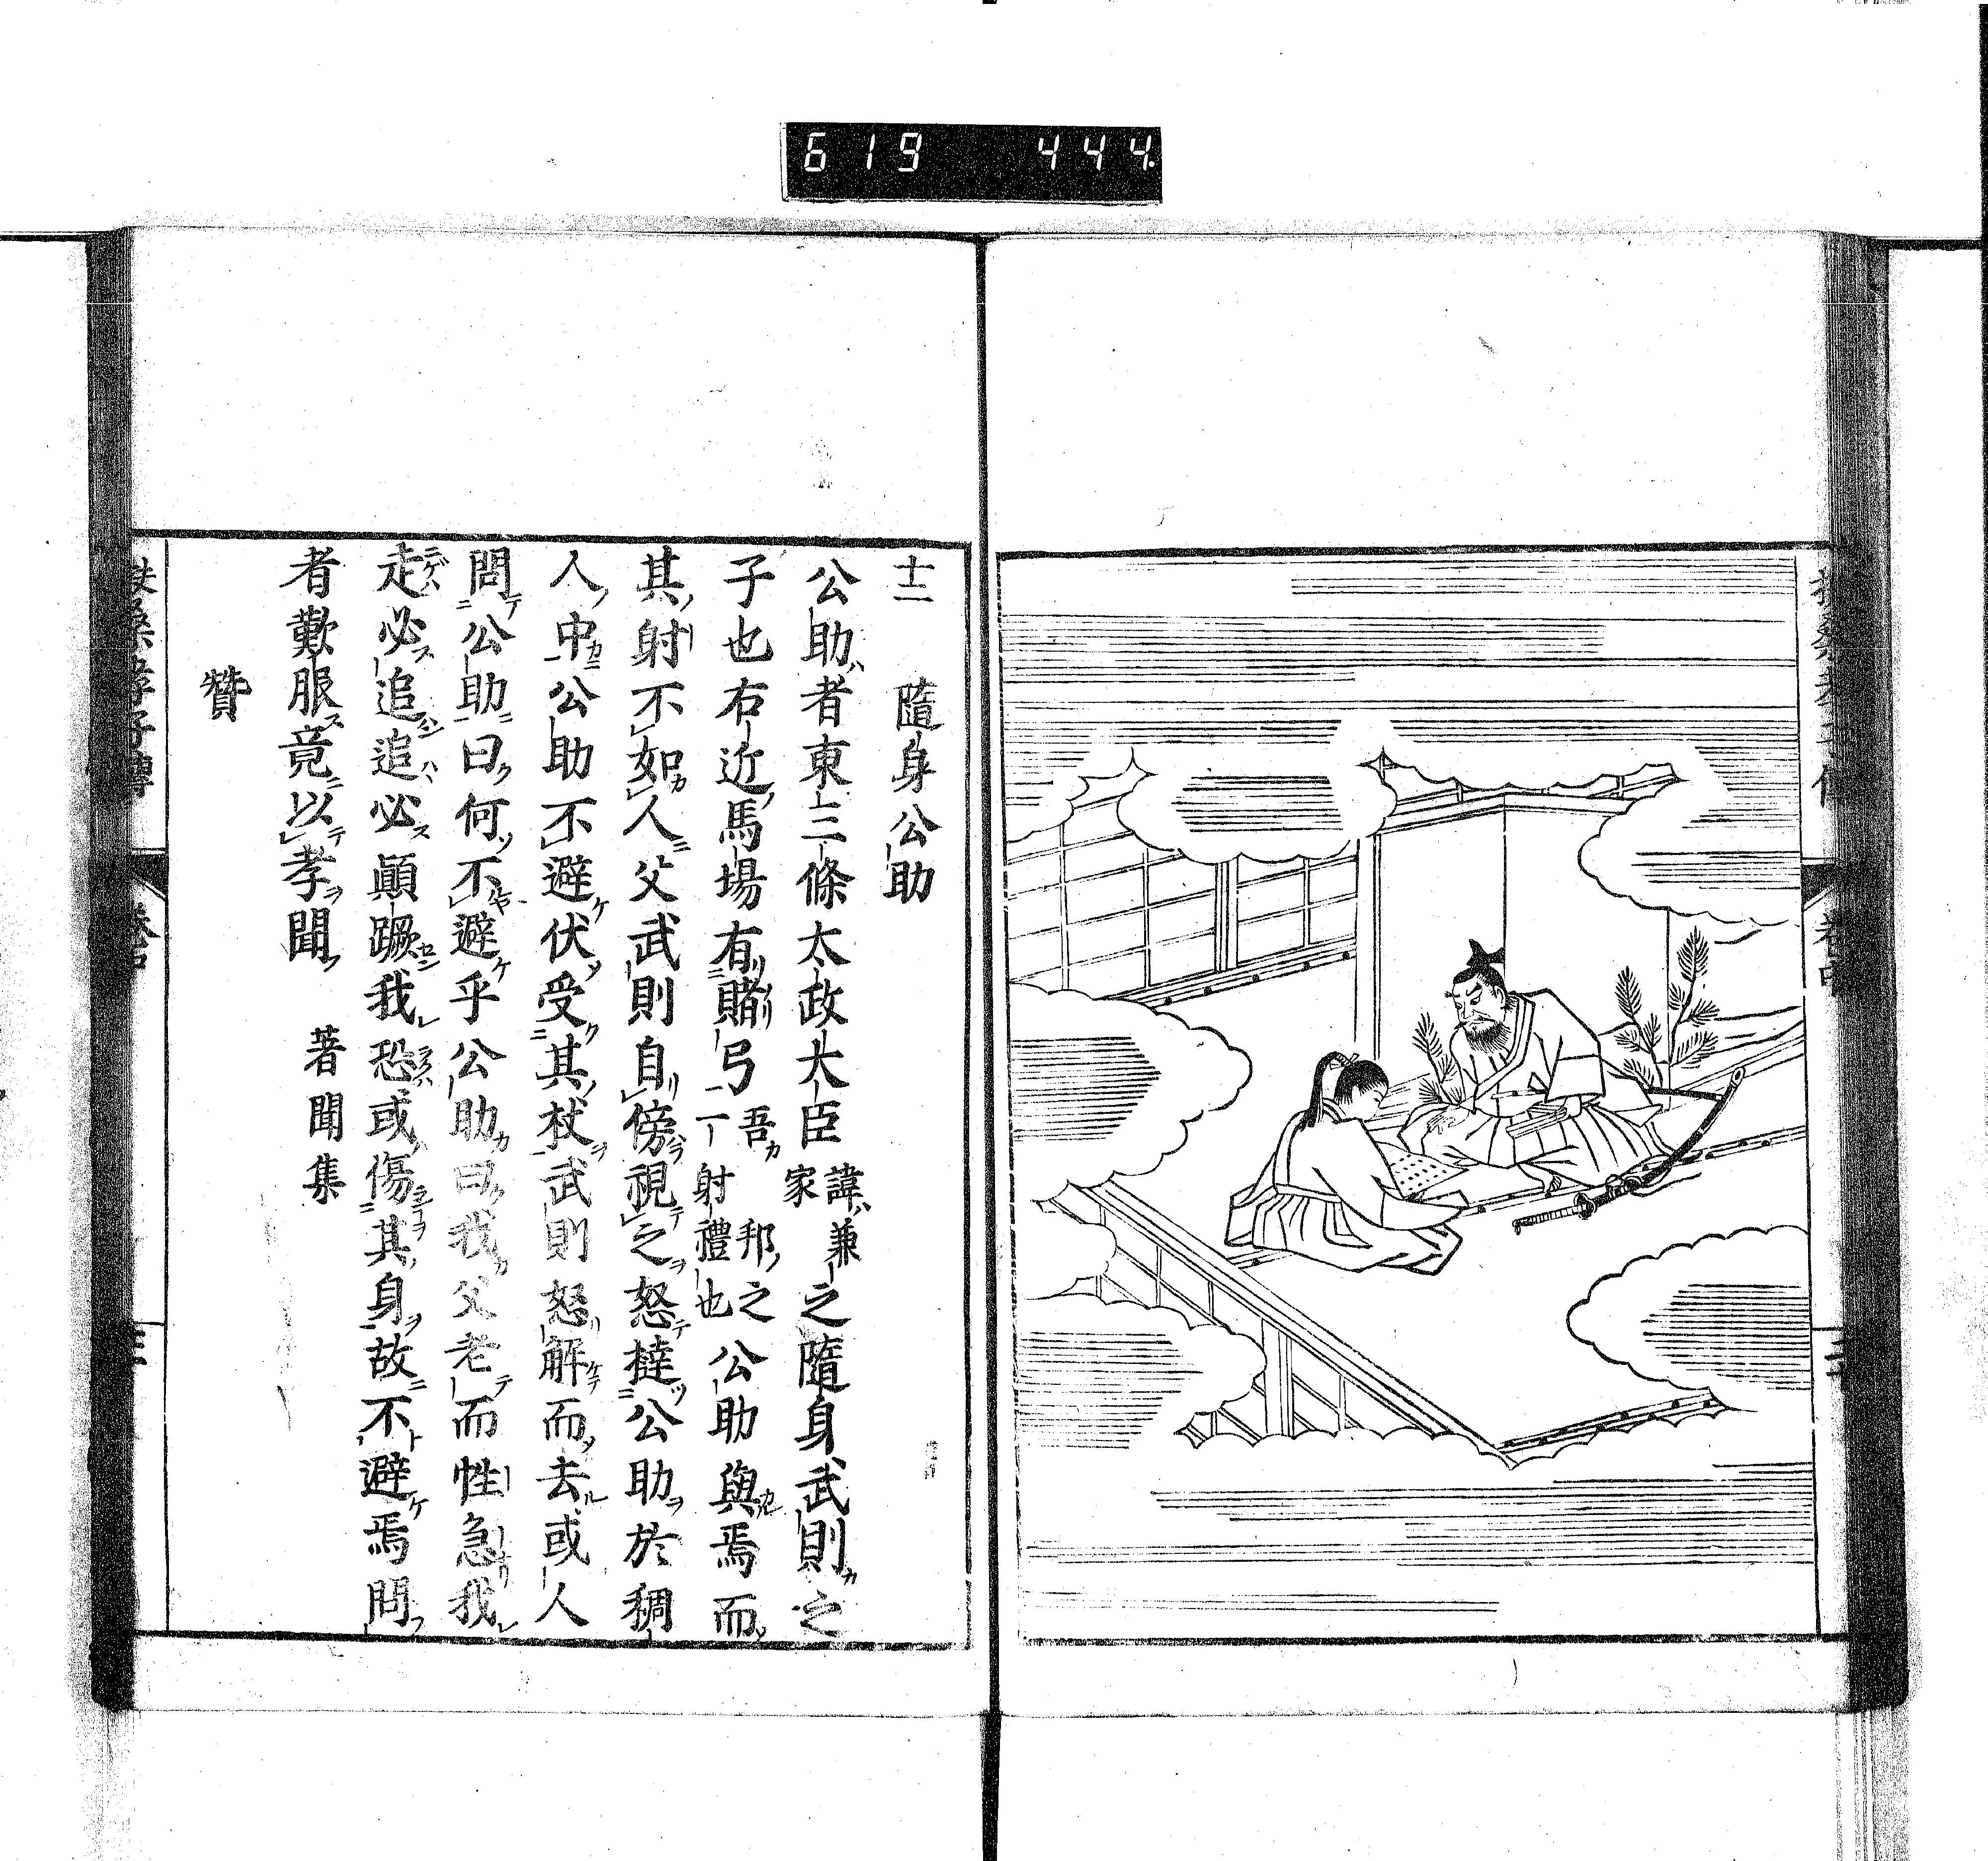 619 444.
卷中
十二 隨身公助
公助者東三條太政大臣諱兼家之隨身武則之
子也右近馬場有賭弓吾邦之一射禮也公助與焉而
其射不如人父武則自傍視之怒撻公助於稠
人中公助不避伏受其杖武則怒解而去或人
問公助曰何不避乎公助曰我父老而性急我
走必追追必顚蹶我恐或傷其身故不避焉問
者歎服竟以孝聞 著聞集
贊